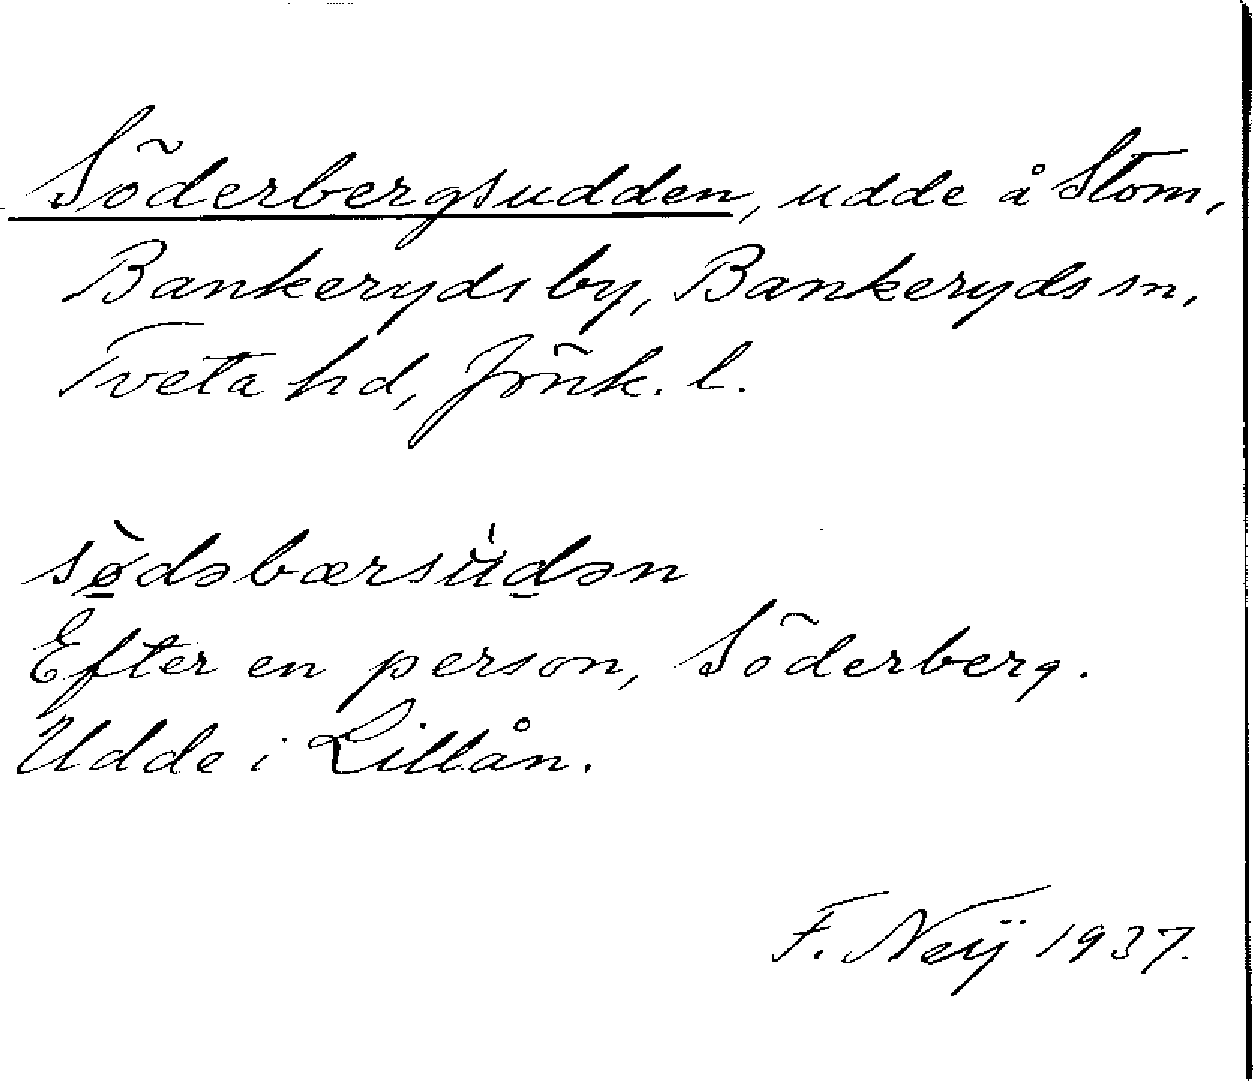 Söderbergsudden, udde å Stom,
Bankeryds by, Bankeryds sn,
Tveta hd, Jönk. l.
sø̱̀dəbærsu̇̈ḏən
Efter en person, Söderberg.
Udde i Lillån.
F. Neij 1937.